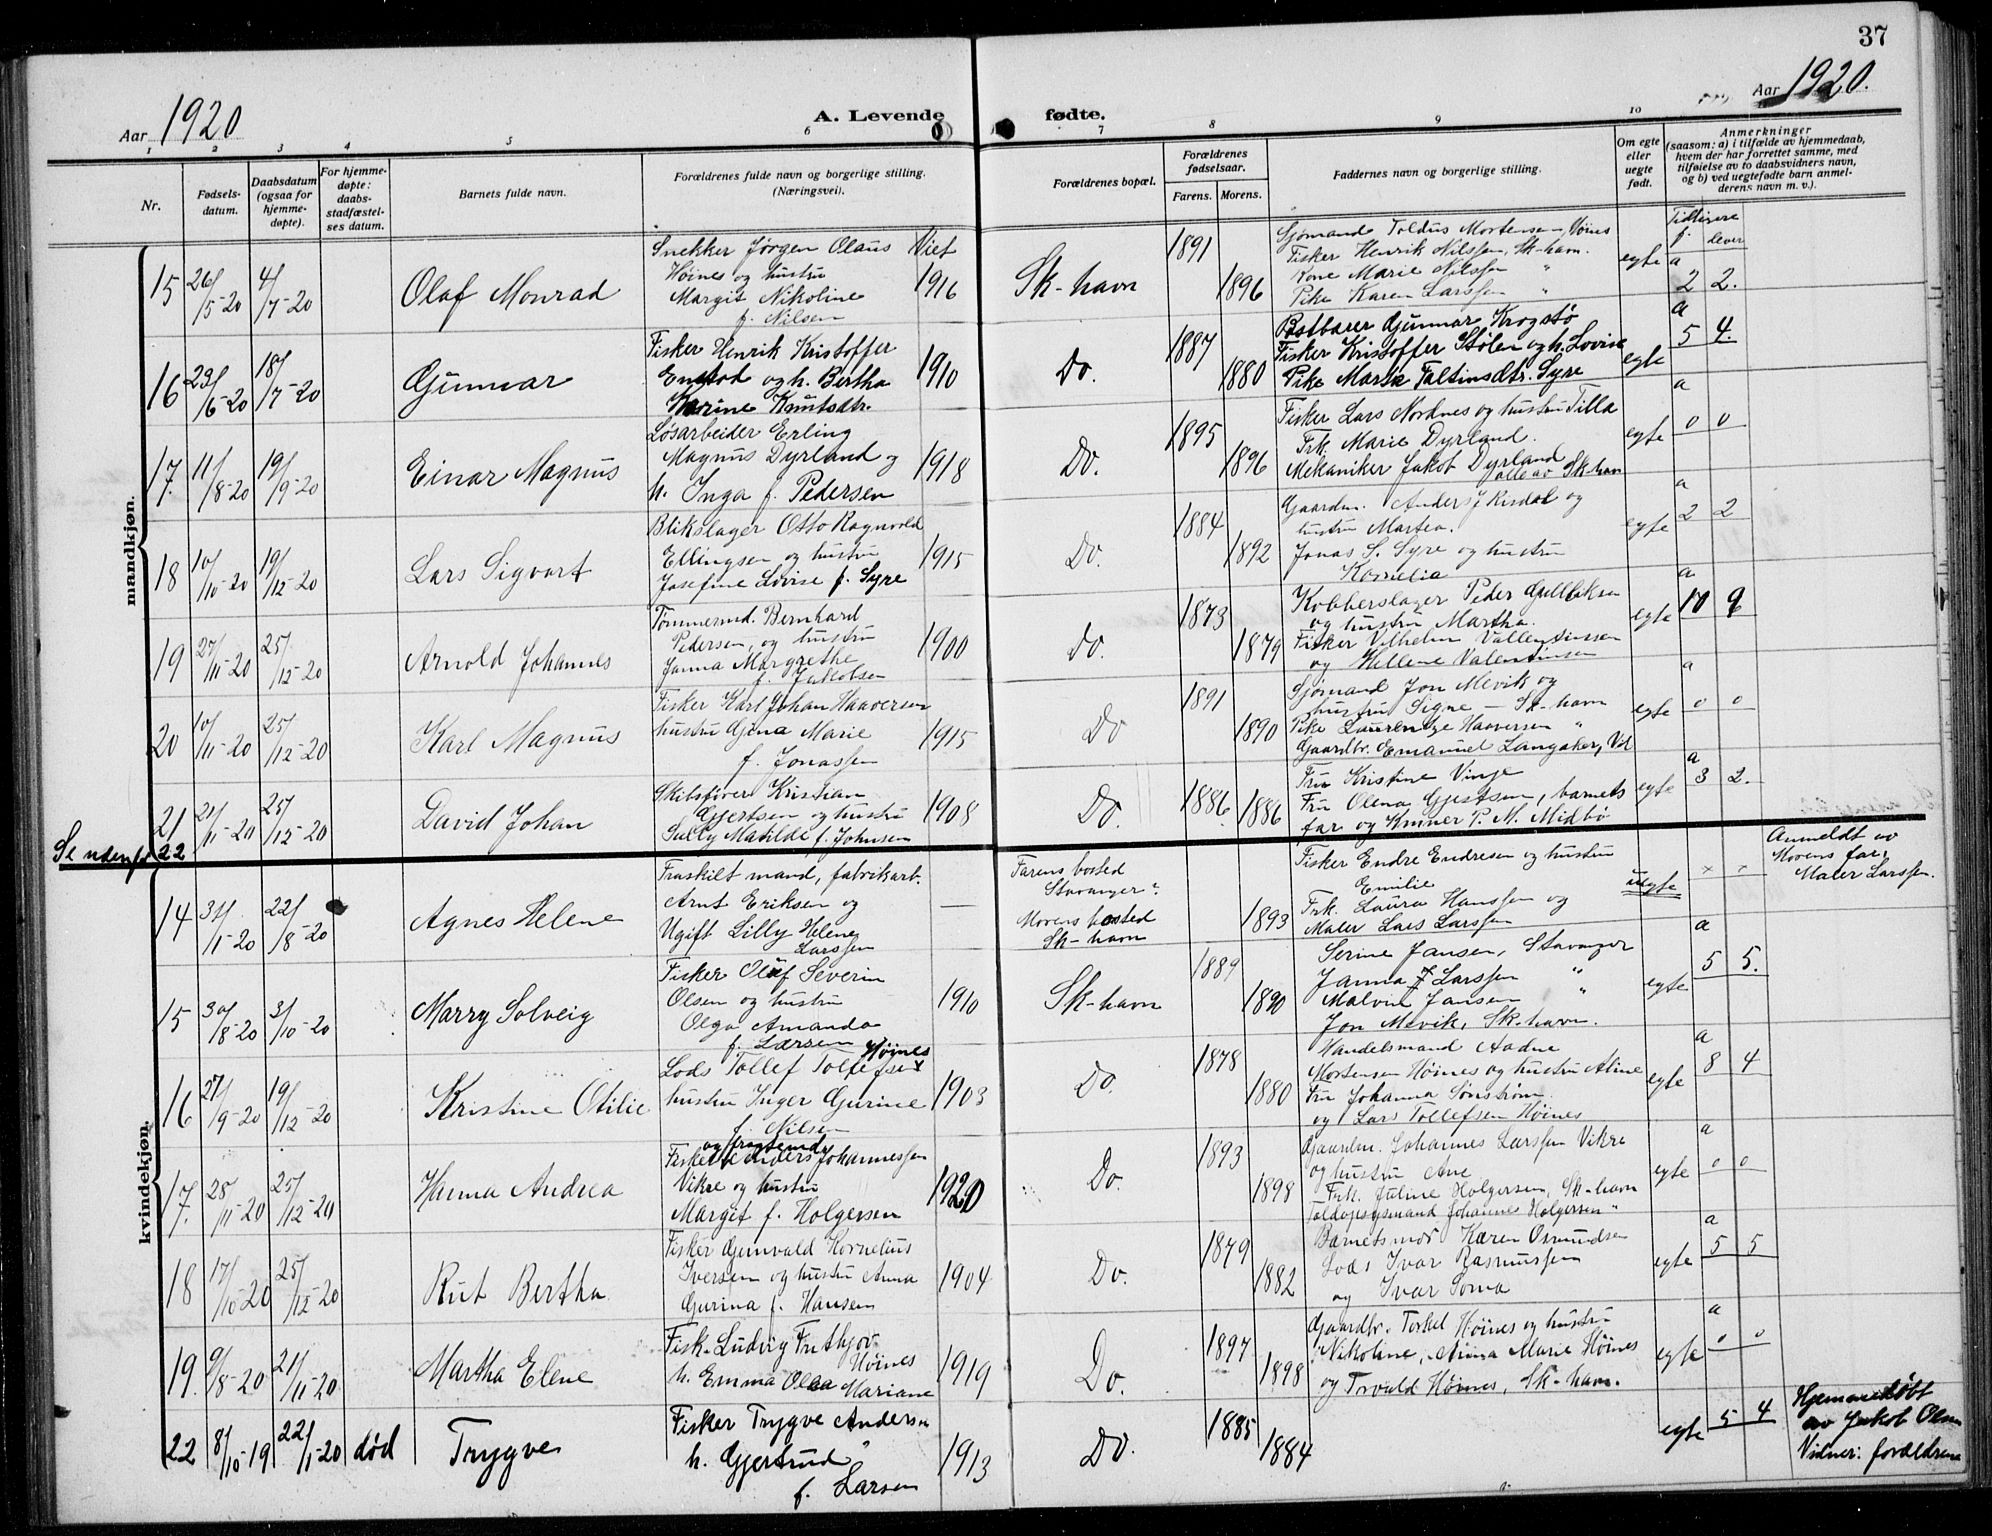 37
Aar 1920
A. Levende fødte.
Aar 1920.
1 2 3 4 5 6 7 8 9 10
Nr.
Fødsels-
datum.
Daabsdatum
(ogsaa for
hjemme-
døpte).
For hjemme-
døpte:
daabs-
stadfæstel-
ses datum.
Barnets fulde navn.
Forældrenes fulde navn og borgerlige stilling.
(Næringsvei).
Forældrenes bopæl.
Forældrenes
fødselsaar.
Farens. Morens.
Faddernes navn og borgerlige stilling.
Om egte
eller
uegte
født.
Anmerkninger
(saasom: a) i tilfælde av hjemmedaab,
hvem der har forrettet samme, med
tilføielse av to daabsvidners navn,
og b) ved uegtefødte barn anmel-
derens navn m. v.).
mandkjøn.
15 26/5-20 4/7-20 Olaf Monrad
Snekker Jørgen Olaus
Høines og hustru
Margit Nikoline
f. Nilsen
Viet
1916
Sk-havn 1891 1896
Sjømand Toldus Mortensen, Høines
Fisker Henrik Nilssen, Sk-havn.
Kone Marie Nilssen "
Pike Karen Larssen "
egte
Tidligere
f. lever
a
2 2.
16 23/6-20 18/7-20 Gunnar
Fisker Henrik Kristoffer
Enstad og h. Bertha
Karine Knutsdtr.
1910
Do. 1887 1880
Postbærer Gunnar Krogstø
Fisker Kristoffer Stølen og h. Lovise
Pike Marie Faltinsdtr. Syre
egte
a
5 4.
17. 11/8-20 19/9-20 Einar Magnus
Løsarbeider Erling
Magnus Dyrland og
h. Inga f. Pedersen
1918
Do. 1895 1896
Fisker Lars Nordnes og hustru Tilla
Frk. Marie Dyrland.
Mekaniker Jakob Dyrland
alle av Sk-havn
egte
a
0 0
18 10/10-20 19/12-20 Lars Sigvart
Blikslager Otto Ragnvald
Ellingsen og hustru
Josefine Lovise f. Syre
1915
Do. 1884 1892
Gaardm. Anders J Risdal og
hustru Martea.
Jonas S. Syre og hustru
Kornelia
egte
a
2 2
19 27/11-20 25/12-20 Arnold Johannes
Tømmermd. Bernhard
Pedersen, og hustru
Janna Margrethe
f. Jakobsen
1900
Do. 1873 1879
Kobberslager Peder Gulliksen
og hustru Martha.
Fisker Vilhelm Vallentinsen
og Hellene Valentinsen
egte
a
10 9
20 10/11-20 25/12-20 Karl Magnus
Fisker Karl Johan Haaversen
hustru Gjina Marie
f. Jonassen
1915
Do 1891 1890
Sjømand Jon Mevik og
hustru Signe - Sk-havn
Pike Laurentze Haaversen "
Gaardbr. Emanuel Langaker, Vil
egte
a
0 0
21 21/11-20 25/12-20 David Johan
Skibsfører Kristian
Gjertsen og hustru
Sully Matilde f. Johnsen
1908
Do. 1886 1886
Fru Kristine Vinje
Fru Olena Gjertsen, barnets
far og Kmner P. M. Midbø
egte
a
3 2.
Se nedenfor 22
kvindekjøn.
14 31/1-20 22/8-20 Agnes Helene
Fraskilt mand, fabrikarb.
Arnt Eriksen og
Ugift Lilly Helene
Larssen
—
Farens bosted
Stavanger?
Morens bosted
Sk-havn
1893
Fisker Endre Endresen og hustru
Emilie
Frk. Laura Hanssen og
Maler Lars Larssen
uegte
× ×
Anmeldt av
Morens far,
Maler Larssen.
15 30/8-20 3/10-20 Marry Solveig
Fisker Olaf Severin
Olsen og hustru
Olga Amanda
f. Larsen
1910
Sk-havn 1889 1890
Serine Jansen, Stavanger
Janna J Larssen "
Malvin Jansen "
Jon Mevik, Sk-havn.
egte
a
5 5.
16 27/9-20 19/12-20 Kristine Otilie
Lods Tollef Tollefsen Høines
hustru Inger Gurine
f. Nilsen
1903
Do. 1878 1880
Handelsmand Aadne
Mortensen Høines og hustru Aline
Fru Johanna Sønstrøm
og Lars Tollefsen Høines
egte
a
8 4
17. 25/11-20 25/12-20 Hanna Andrea
Fisker Anders Johannessen
Vikre og hustru
Margit f. Holgersen
1920
Do. 1893 1898
Gaardm. Johannes Larssen Vikre
og hustru Ane
Frk. Juline Holgersen, Sk-havn
Toldopsynsmand Johannes Holgersen "
egte
a
0 0
18 17/10-20 25/12-20 Rut Bertha
Fisker Gunvald Kornelius
Iversen og hustru Anna
Gurina f. Hansen
1904
Do. 1879 1882
Barnets mor Karen Osmundsen
Lods Ivar Rasmussen
og Ivar Soma
egte
a
5 5
19. 9/8-20 21/11-20 Martha Elene
Fisk. Ludvig Frithjov
Høines
h. Emma Olea Mariane
1919
Do. 1897 1898
Gaardbr. Torkel Høines og hustru
Nikoline, Anna Marie Høines
og Trvald Høines, Sk-havn.
egte
a
0 0
22 8/10-19 22/1-20 død Trygve
Fisker Trygve Andersen
h. Gjertrud
f. Larsen
1913
Do. 1885 1884
egte
5 4
Hjemmedøbt
av Jakob Olsen
Vidner: forældrene